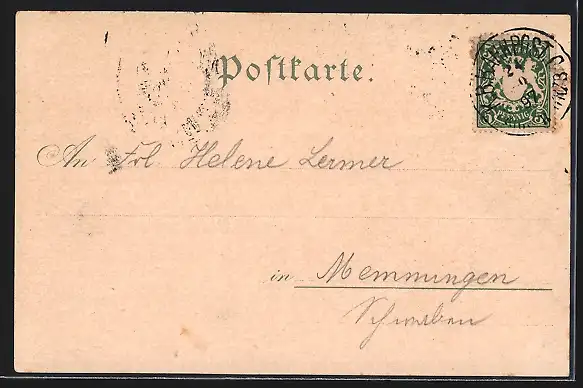 Postkarte.
PFENNIG
An Frl Helene Lermer
in Memmingen
Schwaben